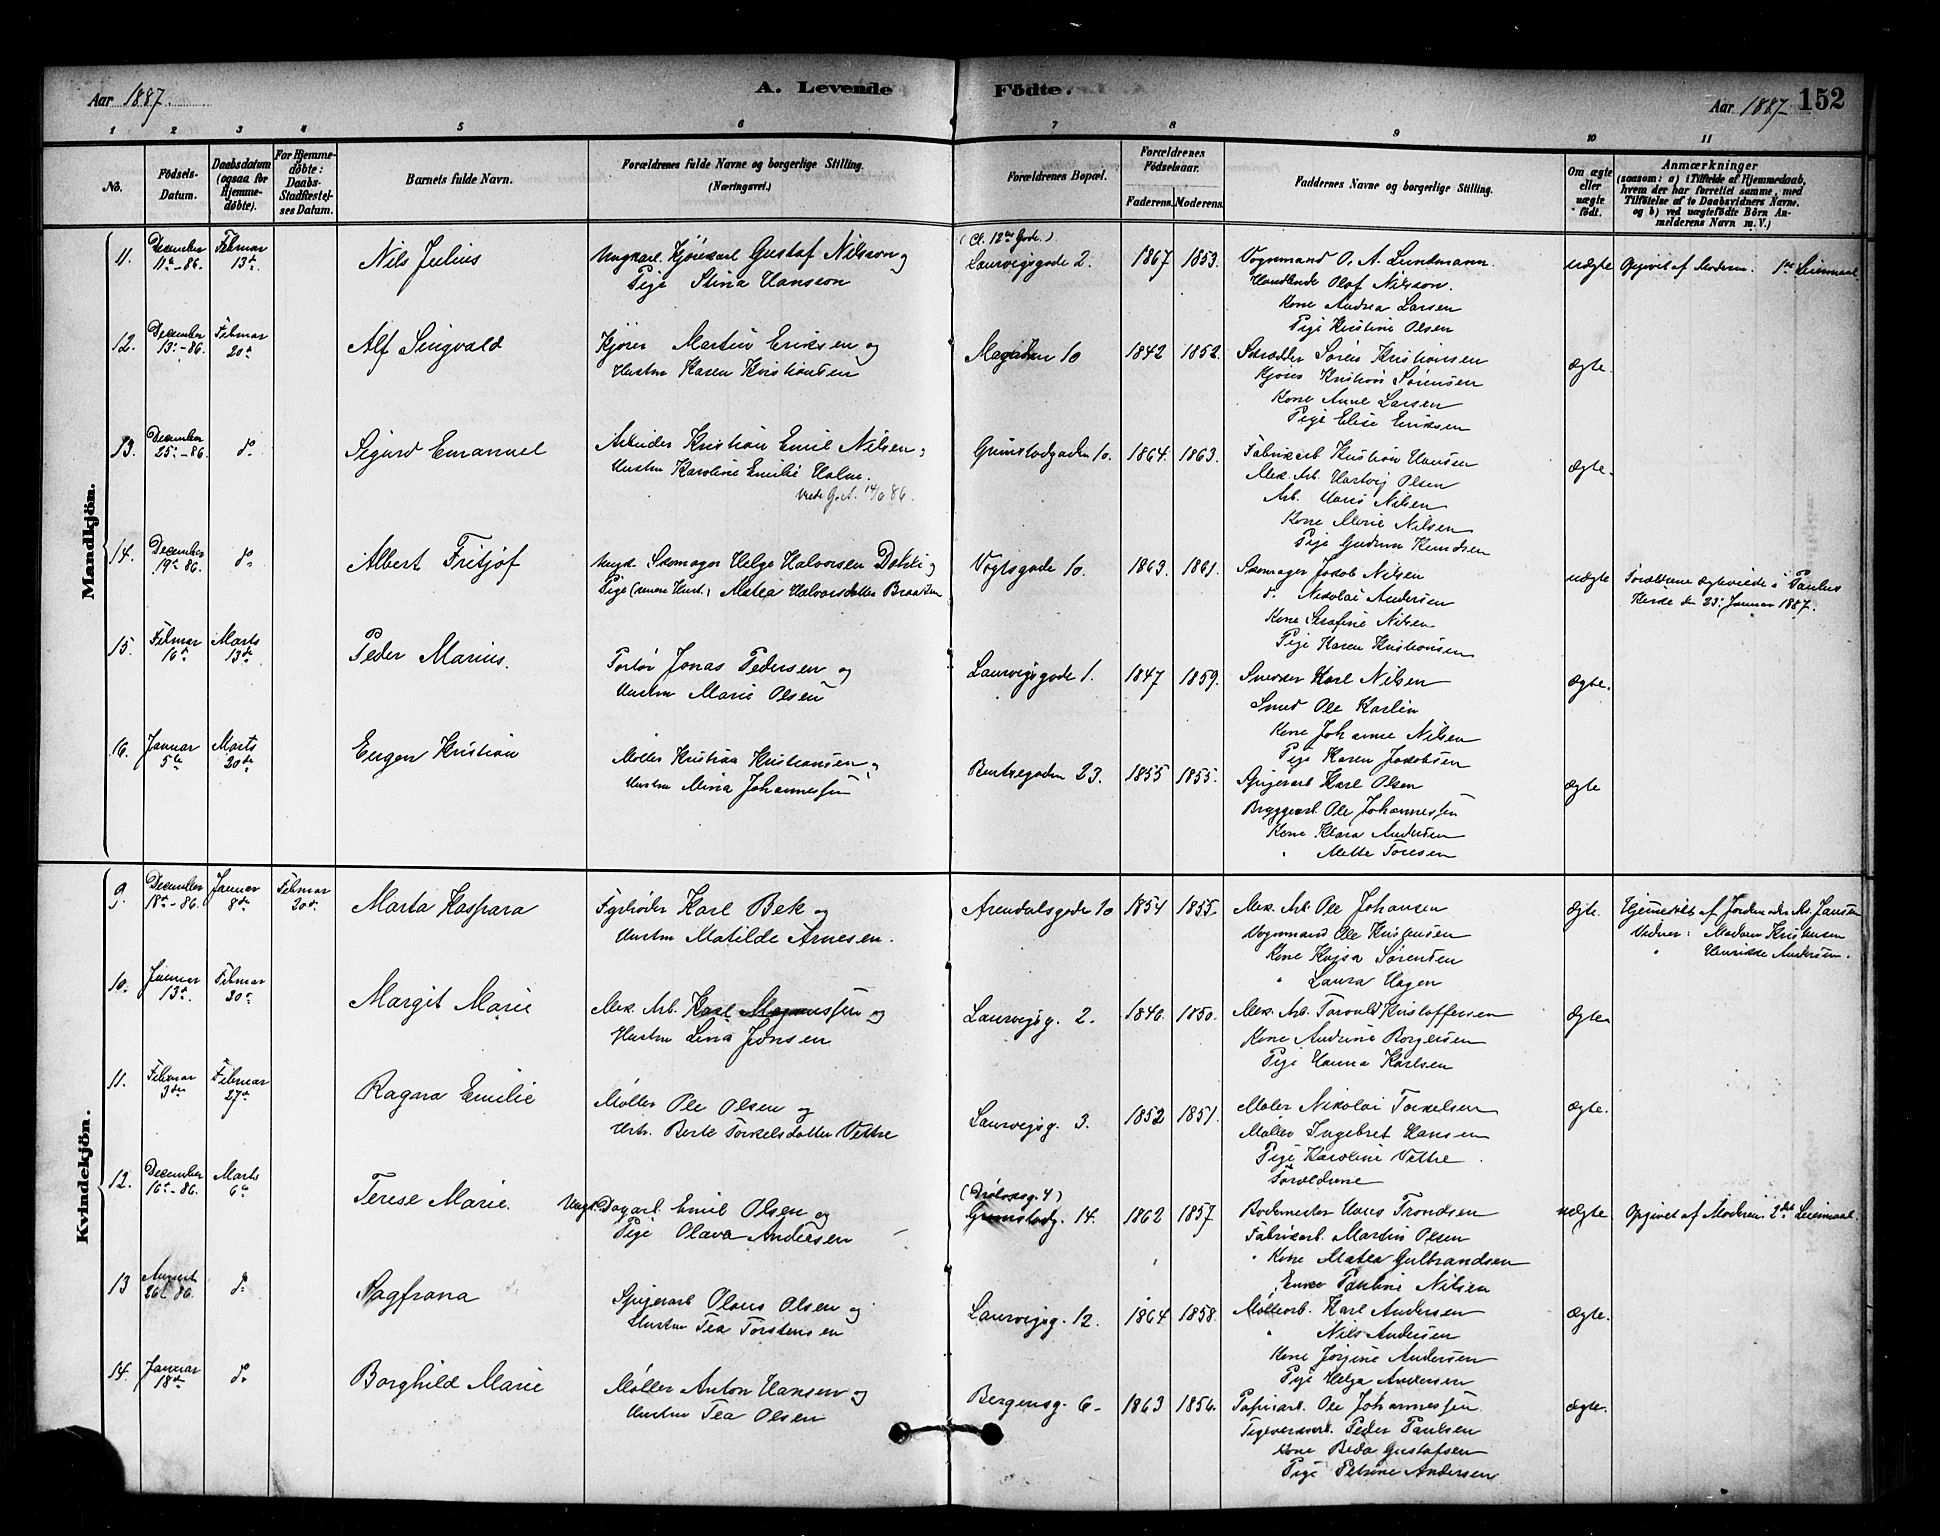 Aar 1887.
A. Levende
Födte.
Aar 1887
152
1 2 3 4 5 6 7 8 9 10 11
No.
Födsels-Datum.
Daabsdatum (ogsaa for Hjemmedöbte).
For Hjemmedöbte: Daabs-Stadfæstelses Datum.
Barnets fulde Navn.
Forældrenes fulde Navne og borgerlige Stilling. (Næringsvei.)
Forældrenes Bopæl.
Forældrenes Födselsaar.
Faderens. Moderens.
Faddernes Navne og borgerlige Stilling.
Om ægte eller uægte födt.
Anmærkninger
(saasom: a) i Tilfælde af Hjemmedaab, hvem der har forrettet samme, med Tilföielse af to Daabsvidners Navne, og b) ved uægtefödte Börn Anmelderens Navn m. V.)
Mandkjön.
11. December 11te-86. Februar 13de Nils Julius
Ungkarl Kjørekarl Gustaf Nilsson og
Pige Stina Hansson
(Cl. 12te Gade.)
Laurvigsgade 2. 1867 1853.
Vognmand O. A. Lundmann.
Handlende Olaf Nilsson.
Kone Andrea Larsen
Pige Kristine Olsen
uægte Opgivet af Moderen. 1ste Leiermaal
12. December 13de-86. Februar 20de Alf Singvald
Kjører Martin Eriksen og
Hustru Karen Kristiansen
10 1842 1852.
Skrædder Søren Kristiansen
Kjører Kristian Sørensen
Kone Anne Larsen
Pige Elise Eriksen
ægte.
13. December 25de-86. do Sigurd Emanuel
Arbeider Kristian Emil Nilsen og
Hustru Karoline Emilie Holm.
Grimstadgaden 10. 1864. 1863.
Fabrikarb Kristian Hansen
Mek. Arb. Hartvig Olsen
Arb. Hans Nilsen
Kone Marie Nilsen
Pige Gudrun Knudsen
ægte.
14. December 19de 86. do Albert Fritjof
Ungk. Skomager Helge Halvorsen Dokli og
Pige (senere Hust.) Matea Halvorsdatter Braaten
Vogtsgade 10. 1863. 1861.
Skomager Jakob Nilsen
do Nikolai Andersen
Kone Serafine Nilsen
Pige Karen Kristiansen
uægte Forældrene ægteviede i Paulus
Kirke den 23de Januar 1887.
15. Februar 16de Marts 13de Peder Marius.
Portør Jonas Pedersen og
Hustru Marie Olsen
Laurvigsgade 1. 1847 1859.
Snedker Karl Nilsen
Smed Ole Karlin
Kone Johanne Nilsen
Pige Karen Jakobsen
ægte.
16. Januar 5te Marts 20de Eugen Kristian
Møller Kristian Kristiansen og
Hustru Mina Johannessen
Bentsegaden 23. 1855 1855.
Spigerarb Karl Olsen
Bryggearb. Ole Johannessen
Kone Klara Andersen
" Mette Toresen
ægte
Kvindekjön.
9. December 18de-86. Januar 8de Februar 20de Marta Kaspara
Fyrbøder Karl Bek og
Hustru Matilde Arnesen.
Arendalsgade 10 1854 1855.
Mek. Arb. Ole Johansen
Vognmand Ole Kristensen
Kone Kajsa Sørensen
" Laura Hagen
ægte. Hjemmedøbt af Jordemoder Ms. Jansen
Vidner: Madam Kristensen
" Henrikke Andersen.
10. Januar 13de Februar 20de Margit Marie
Mek. Arb. Karl Magnussen og
Hustru Lina Jonsen
Laurvigsg. 2. 1846. 1850.
Mek. Arb. Torvald Kristoffersen
Kone Andrine Borgersen
Pige Hanna Karlsen
ægte
11. Februar 3die Februar 27de Ragna Emilie
Møller Ole Olsen og
Hstr. Berte Torkelsdatter Vettre
Laurvigsg. 3. 1852 1851.
Maler Nikolai Torkelsen
Møller Ingebret Hansen
Pige Karoline Vettre.
Forældrene
ægte.
12. December 16de-86. Marts 6te Terese Marie.
Ungk. Dagarb. Emil Olsen og
Pige Olava Andersen
Grimstadg. 14. 1862 1857
Bademester Hans Trondsen
Fabrikarb. Martin Olsen
Kone Matea Gulbrandsen
Enke Pauline Nilsen
uægte Opgivet af Moderen. 2det Leiermaal.
13 August 26de 86. do Dagfrana
Spigerarb Olaus Olsen og
Hustru Tea Torstensen
Laurvigsg. 12. 1864 1858.
Møllearb. Karl Andersen
" Nils Andersen
Kone Jørgine Andersen
Pige Helga Andersen
ægte.
14. Januar 18de do Borghild Marie
Møller Anton Hansen og
Hustru Tea Olsen
Bergensg. 6- 1863 1856.
Papirarb. Ole Johannessen.
Teglverksarb. Peder Paulsen
Kone Beda Gustafsen
Pige Petrine Andersen
ægte.